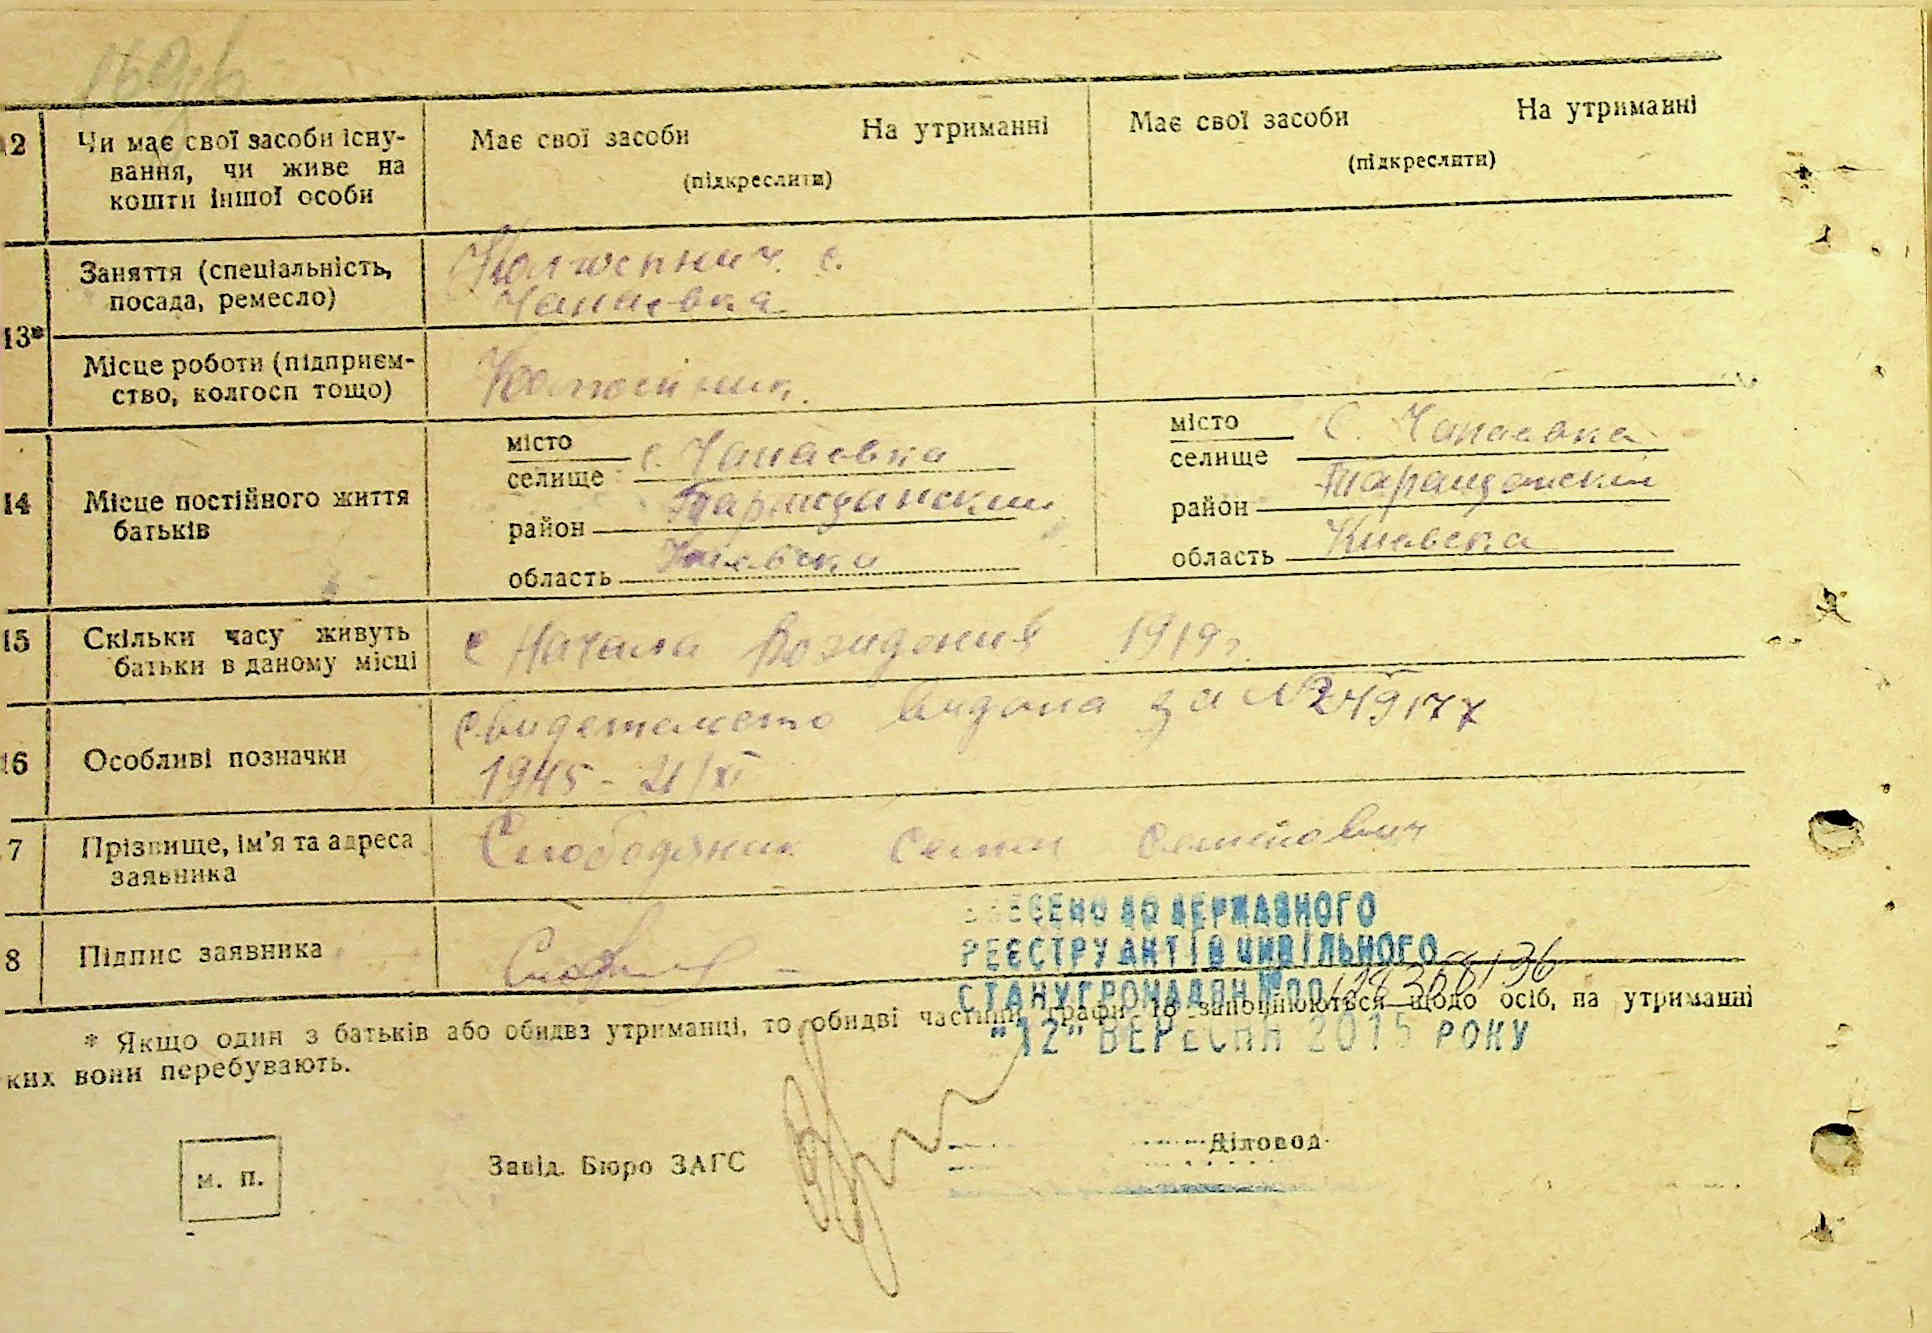 2 Чи має свої засоби існу-
вання, чи живе на
кошти іншої особи
Має свої засоби На утриманні
(підкреслити)
Має свої засоби На утриманні
(підкреслити)
13*
Заняття (спеціальність,
посада, ремесло)
с.
Чапаевка
Місце роботи (підприєм-
ство, колгосп тощо)
14 Місце постійного життя
батьків
місто
селище с. Чапаевка
район Таращанский
область Киевска
місто
селище С. Чапаевка
район Таращанский
область Киевска
15 Скільки часу живуть
батьки в даному місці
с Начала 1919 г.
16 Особливі позначки
свидетельство видана за № 249177
1945 - 21/XI
7 Прізвище, ім'я та адреса
заявника
Слободяник Семен Семенович
8 Підпис заявника
ВНЕСЕНО ДО ДЕРЖАВНОГО
РЕЄСТРУ АКТІВ ЦИВІЛЬНОГО
СТАНУ ГРОМАДЯН №00
"12" ВЕРЕСНЯ 2015 РОКУ
* Якщо один з батьків або обидва утриманці, то обидві частини графи 13 заповнюються щодо осіб, на утриманні
ких вони перебувають.
м. п.
Завід. Бюро ЗАГС
Діловод